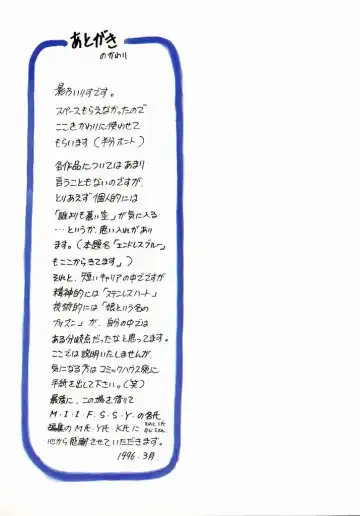 あとがき
のかわり
いりすです。
スペースもらえなかったので
ここをかわりに使わせて
もらいます(半分ホント)
各作品についてはあまり
言うこともないのですが、
とりあえず個人的には
「誰よりも蒼い空」が気に入る
…というか、思い入れがあり
ます。(本題名「エンドレスブルー」
もここからきてます」)
それと、短いキャリアの中でですが
精神的には「ステンレスハート」
技術的には「娘という名の
プリズン」が、自分の中では
ある分岐点だったなと思ってます。
ここでは説明いたしませんが、
気になる方はコミックハウス宛に
手紙を出して下さい。(笑)
最後に、この場を借りて
M・I・I・F・S・S・Y・の各氏
編集のM氏・Y氏・K氏に
心から感謝させていただきます。
1996.3月.